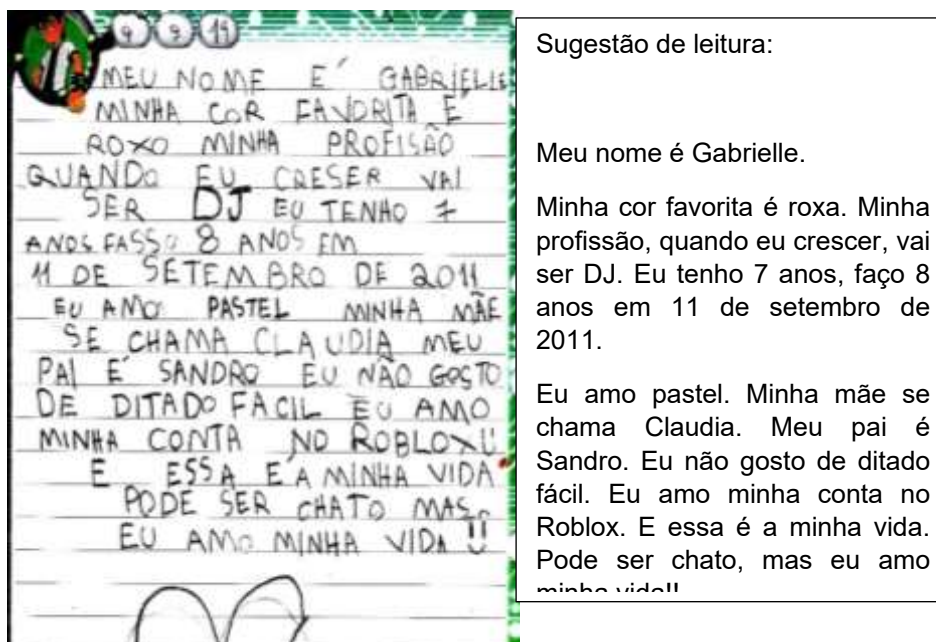 9 9 19
MEU NOME É GABRIELLE
MINHA COR FAVORITA É
ROXO MINHA PROFISÃO
QUANDO EU CRESER VAI
SER DJ EU TENHO 7
ANOS FASSO 8 ANOS EM
11 DE SETEMBRO DE 2011
EU AMO PASTEL MINHA MÃE
SE CHAMA CLAUDIA MEU
PAI É SANDRO EU NÃO GOSTO
DE DITADO FACIL EU AMO
MINHA CONTA NO ROBLOX!!
E ESSA E A MINHA VIDA
PODE SER CHATO MAS
EU AMO MINHA VIDA !!
Sugestão de leitura:
Meu nome é Gabrielle.
Minha cor favorita é roxa. Minha
profissão, quando eu crescer, vai
ser DJ. Eu tenho 7 anos, faço 8
anos em 11 de setembro de
2011.
Eu amo pastel. Minha mãe se
chama Claudia. Meu pai é
Sandro. Eu não gosto de ditado
fácil. Eu amo minha conta no
Roblox. E essa é a minha vida.
Pode ser chato, mas eu amo
minha vida!!